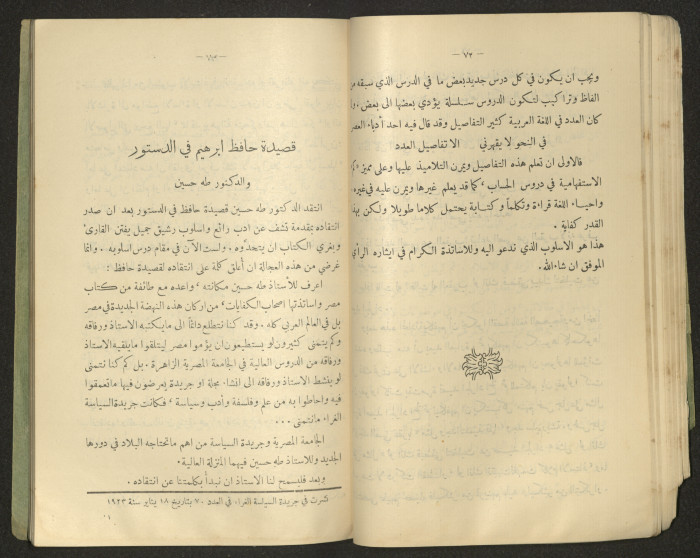 — ٧٢ —
ويجب ان يكون في كل درس جديد بعض ما في الدرس الذي سبقه من
الفاظ وتراكيب لتكون الدروس سلسلة يؤدي بعضها الى بعض
كان العدد في اللغة العربية كثير التفاصيل وقد قال فيه احد أدباء العصر
في النحو لا يقهرني الا تفاصيل العدد
فالاولى ان تعلم هذه التفاصيل ويمرن التلاميذ عليها وعلى مميز
الاستفهامية في دروس الحساب ، كما قد يعلم غيرها ويمرن عليه في غير
واحياء اللغة قراءة وتكلماً وكتابة يحتمل كلاما طويلا ولكن بهذا
القدر كفاية .
هذا هو الاسلوب الذي ندعو اليه وللاساتذة الكرام في ايثاره الرأي
الموفق ان شاء الله .
— ٧٣ —
قصيدة حافظ ابرهيم في الدستور
والدكتور طه حسين
انتقد الدكتور طه حسين قصيدة حافظ في الدستور بعد ان صدر
انتقاده بمقدمة تشف عن ادب رائع واسلوب رشيق جميل يفتن القارئ
ويغري الكتاب ان يتحدوه . ولست الآن في مقام درس اسلوبه . وانما
غرضي من هذه العجالة ان أعلق كلمة على انتقاده لقصيدة حافظ :
اعرف للأستاذ طه حسين مكانته ، واعده مع طائفة من كتاب
مصر واساتذتها اصحاب الكفايات ، من اركان هذه النهضة الجديدة في مصر
بل في العالم العربي كله . وقد كنا نتطلع دائماً الى ما يكتبه الاستاذ ورفاقه
وكم يتمنى كثيرون لو يستطيعون ان يؤموا مصر ليتلقوا ما يلقيه الاستاذ
ورفاقه من الدروس العالية في الجامعة المصرية الزاهرة . بل كم كنا نتمنى
لو ينشط الاستاذ ورفاقه الى انشاء مجلة او جريدة يعرضون فيها ما تعمقوا
فيه واحاطوا به من علم وفلسفة وأدب وسياسة ، فكانت جريدة السياسة
الغراء ما نتمنى ...
الجامعة المصرية وجريدة السياسة من اهم ما تحتاجه البلاد في دورها
الجديد وللاستاذ طه حسين فيهما المنزلة العالية .
وبعد فليسمح لنا الاستاذ ان نبدأ بكلمتنا عن انتقاده .
نشرت في جريدة السياسة الغراء في العدد ٧٠ بتاريخ ١٨ يناير سنة ١٩٢٣